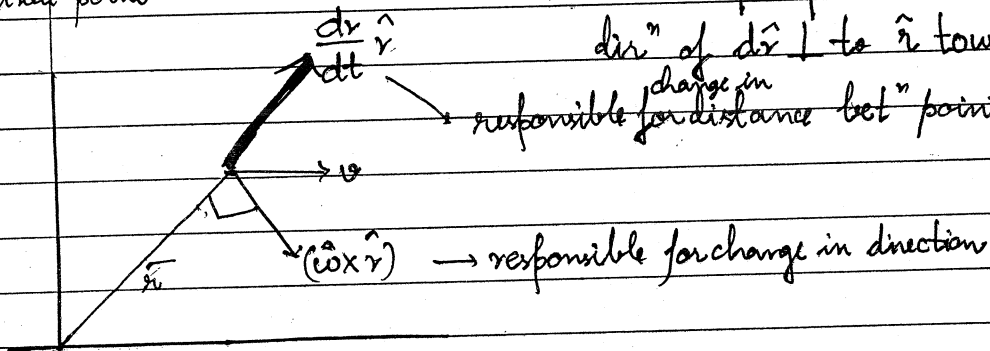 dr/dt r̂
dirⁿ of dr̂ ⊥ to r̂ tow
change in
responsible for distance betⁿ poin
v
r̄
(ω̂×r̂) → responsible for change in direction